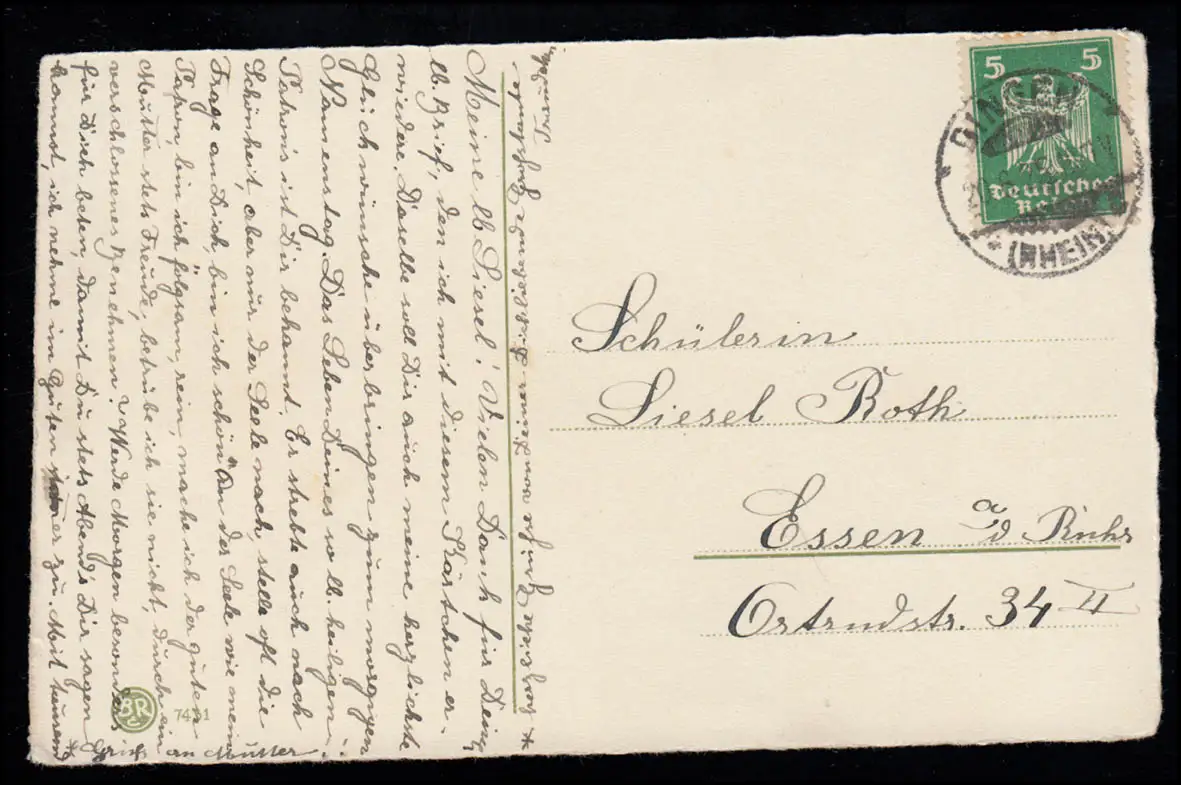 Meine lb Liesel! Vielen Dank für Dein
lb. Brief, den ich mit diesem Kärtchen er-
widere. Daselbe soll Dir auch meine herzlichste
Glückwünsche überbringen zum morgigen
Namenstag. Das Leben Deines so lb. heiligen
Patrons ist Dir bekannt. Er strebte auch nach
Schönheit, aber nur der Seele nach, stelle oft die
Frage an Dich, bin ich schön an der Seele wie mein
Patron, bin ich folgsam, rein, mache ich der guten
Mutter stets Freude, betrübe ich sie nicht, durch ein
verschlossenes Benehmen? Werde Morgen besonders
für Dich beten, damit Du stets Abends Dir sagen
kannst, ich nehme im Guten immer zu. Mit treuem
* Gruß an Mutter.
* herzliche Grüße von Deiner Dich liebend.
BR
C
7451
5 5
Deutsches
Reich
(RHEIN)
Schülerin
Liesel Roth
Essen a/d Ruhr
Ortrudstr. 34 II